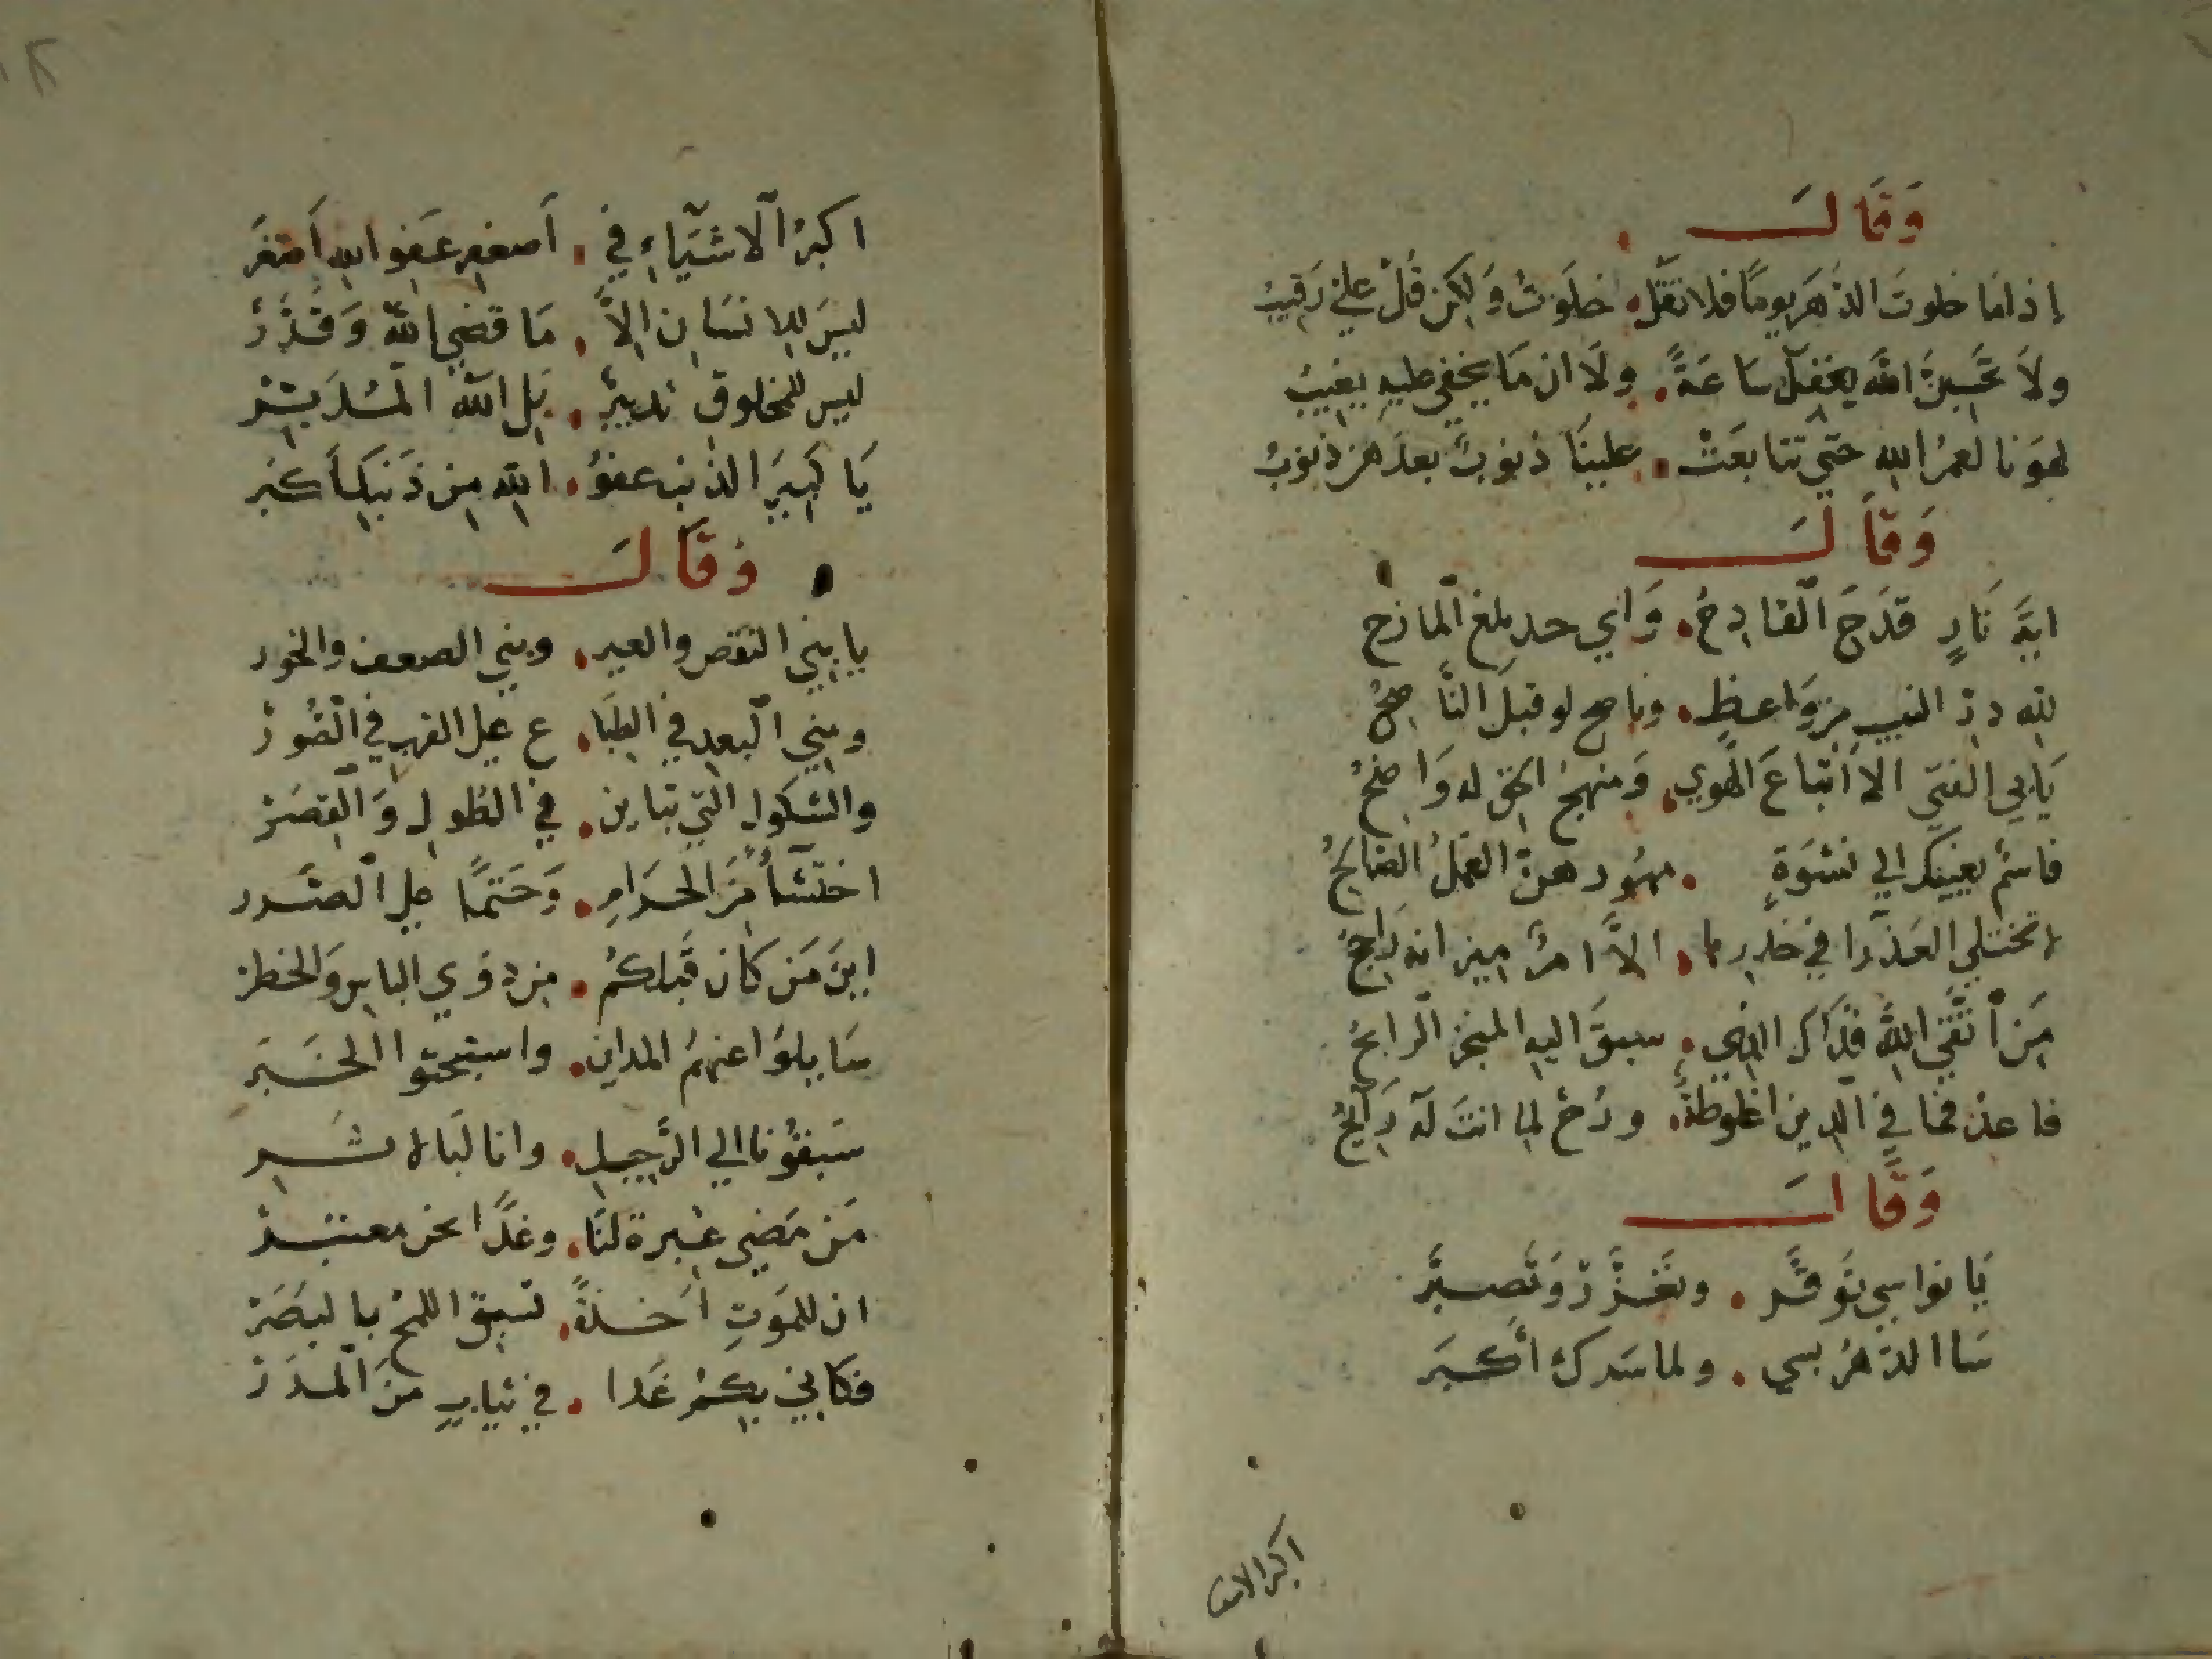 وَقَالَ
إذا مَا خلوتَ الدَّهرَ يومًا فلا تقُل . خلَوتُ وَلٰكن قُل عليَّ رَقيبُ
ولاَ تحَسِبنَّ اللهَ يغفلُ سَاعَةً . ولَا ان مَا يخفي عليهِ يغيبُ
لهوَنا لعمرُ الله حتي تتابعَتْ . علينَا ذنوبٌ بعدَهن ذنوبُ
وَقَالَ
ايَّةَ نَارٍ قدَحَ القَادِحُ . وَاي حدٍ بلغ المازح
لله درّ الشيب من وَاعظٍ . وناصح لو قبلَ النَّاصحُ
يَابي الفتي الا اتّباعَ الهوي . وَمنهجُ الحق له وَاضحُ
فاسمُ بعينيك الي نسْوَةٍ . مهُورهنّ العمَلُ الصَّالحُ
لا تختلي العَذرا في خدرها . الاَّ امرُءٌ ميزانه رَاجحُ
مَن اتَّقي اللهَ فذاك الذي . سيقَ اليهِ المتجرُ الرابحُ
فاعد فما في الدين اغلوطةٌ . ورُحْ لما انتَ لهُ رَايحُ
وَقَالَ
يَا نواسي تَوقَّر . وتعَزَّز وَتَصبَّر
سَاا الدّهرُ بسي . ولما سَرك أكبَر
اكبر الاشيا
اكبرُ الاشيَآءِ في . اَصغرِ عَفو اللهِ اَصغَر
ليسَ للانسَانِ الاَّ . مَا قضي اللهُ وَقدَّرْ
ليس للمخلوق تدبيرٌ . بَل اللهُ المُدَبِّرْ
يَا كَبيرَ الذنبِ عفوُ . اللهِ مِن ذَنبكَ اَكبَر
وَقَالَ
يا بني النَقص والعبر . وبني الضعف والخور
وبني البُعدِ في الطبَا . ع علي القرب في الصُّوَرْ
والشكول التي تباين . في الطُول وَالقِصَرْ
احتسَاً مَن الحرَامِ . وَحتمًا علي الصَّدر
اينَ مَن كَان قَبلكُم . مِن ذوي الباسِ وَالخطرْ
سَايلوُا عنهمُ المداين . واستبحثوا الخبَر
سَبقُونا الي الرَّحيلِ . وانا لَبالاثَر
مَن مَضي عبرةٌ لنَا . وغدًا نحن معتبَرْ
ان للمَوتِ اَخذةً . تسبق اللمحَ بالبصَرْ
فكاني بكمُ غَدا . في ثيابٍ منَ المدَرْ